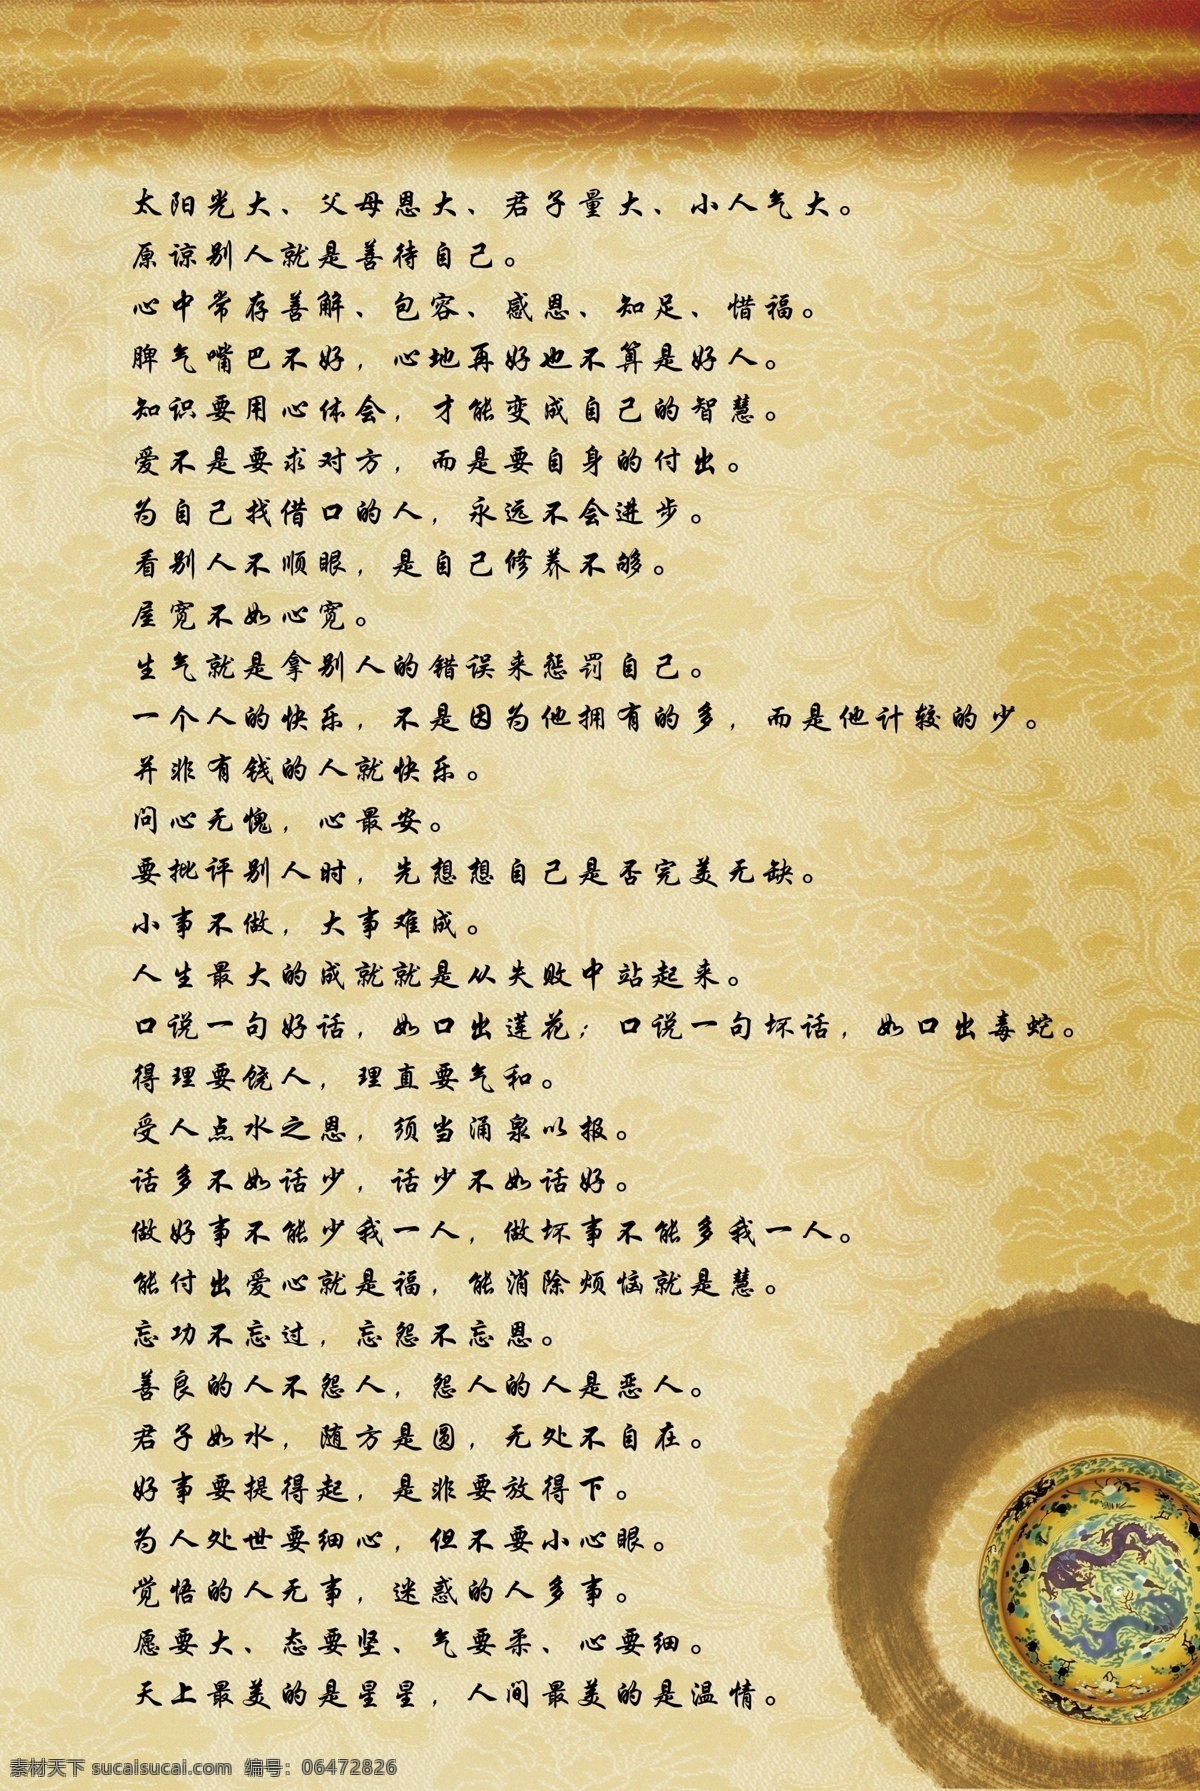 太阳光大、父母恩大、君子量大、小人气大。
原谅别人就是善待自己。
心中常存善解、包容、感恩、知足、惜福。
脾气嘴巴不好，心地再好也不算是好人。
知识要用心体会，才能变成自己的智慧。
爱不是要求对方，而是要自身的付出。
为自己找借口的人，永远不会进步。
看别人不顺眼，是自己修养不够。
屋宽不如心宽。
生气就是拿别人的错误来惩罚自己。
一个人的快乐，不是因为他拥有的多，而是他计较的少。
并非有钱的人就快乐。
问心无愧，心最安。
要批评别人时，先想想自己是否完美无缺。
小事不做，大事难成。
人生最大的成就就是从失败中站起来。
口说一句好话，如口出莲花；口说一句坏话，如口出毒蛇。
得理要饶人，理直要气和。
受人点水之恩，须当涌泉以报。
话多不如话少，话少不如话好。
做好事不能少我一人，做坏事不能多我一人。
能付出爱心就是福，能消除烦恼就是慧。
忘功不忘过，忘怨不忘恩。
善良的人不怨人，怨人的人是恶人。
君子如水，随方是圆，无处不自在。
好事要提得起，是非要放得下。
为人处世要细心，但不要小心眼。
觉悟的人无事，迷惑的人多事。
愿要大、态要坚、气要柔、心要细。
天上最美的是星星，人间最美的是温情。
素材天下 sucaisucai.com 编号：06472826